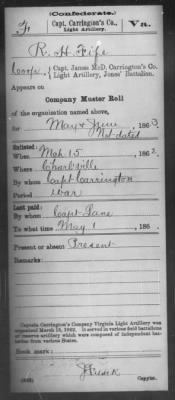 (Confederate.)
F Capt. Carrington's Co., Va.
Light Artillery.
R. H. Fife
Corp., Capt. James McD. Carrington's Co.
Light Artillery, Jones' Battalion.
Appears on
Company Muster Roll
of the organization named above,
for May & June, 1863.
Not dated
Enlisted:
When Mch 15, 1862.
Where Charl'sville
By whom Capt Carrington
Period War
Last paid:
By whom Capt Lane
To what time May 1, 186 .
Present or absent Present
Remarks:
Captain Carrington's Company Virginia Light Artillery was
organized March 15, 1862. It served in various field battalions
or reserve artillery which were composed of independent batteries
from various States.
Book mark:
(642)
Copyist.